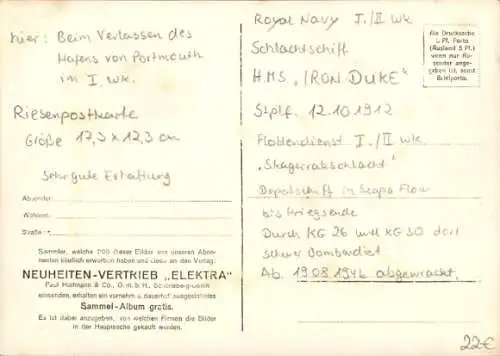 hier: Beim Verlassen des
Hafens von Portmouth
im I. WK.
Riesenpostkarte
Größe 17,3 x 12,3 cm
Sehr gute Erhaltung
Absender:
Wohnort:
Straße:
Sammler, welche 200 dieser Bilder von unseren Abon-
nenten käuflich erworben haben und diese an den Verlag:
NEUHEITEN-VERTRIEB „ELEKTRA"
Paul Hartmann & Co., G. m. b. H.,
einsenden, erhalten ein vornehm u. dauerhaft ausgestattetes
Sammel-Album gratis.
Es ist dabei anzugeben, von welchen Firmen die Bilder
in der Hauptsache gekauft wurden.
Royal Navy I./II WK
Schlachtschiff
H.M.S „IRON DUKE"
Stplf. 12.10.1912
Flottendienst I./II WK.
„Skagerrakschlacht"
Depotschiff in Scapa Flow
bis Kriegsende
Durch KG 26 und KG 30 dort
schwer Bombardiert
Ab. 19.08.1946 abgewrackt.
Als Drucksache
Pf. Porto
(Ausland 5 Pf.)
wenn nur Ab-
sender ange-
geben ist, sonst
Briefporto.
22€